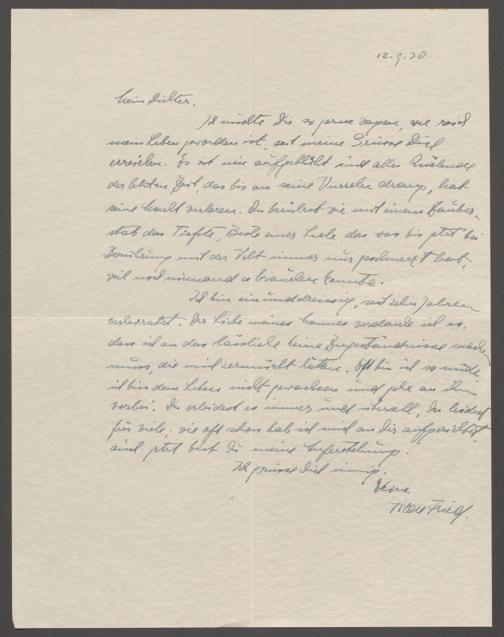 12.9.30.
Mein Dichter.
Ich möchte Dir so gerne sagen, wie reich
mein Leben geworden ist, seit meine Grüsse Dich
erreichen. Es ist nun aufgeblüht und alles Quälende
der letzten Zeit, das bis an seine Wurzeln drang, hat
seine Macht verloren. Du berührst wie mit einem Zauber-
stab das Tiefste, Beste einer Seele das was bis jetzt bei
Berührung mit der Welt immer nur geschmerzt hat,
weil noch niemand es brauchen konnte.
Ich bin einunddreissig, seit zehn Jahren
verheiratet. Der Liebe meines Mannes verdanke ich es,
dass ich an das Hässliche keine Zugeständnisse machen
muss, die mich vernichtet hätten. Oft bin ich so müde
ich bin dem Leben nicht gewachsen und gehe an ihm
vorbei. Du erleidest es immer und überall, Du leidest
für viele; wie oft schon hab ich mich an Dir aufgerichtet
und jetzt bist Du meine Auferstehung.
Ich grüsse Dich innig.
Deine
Fried.